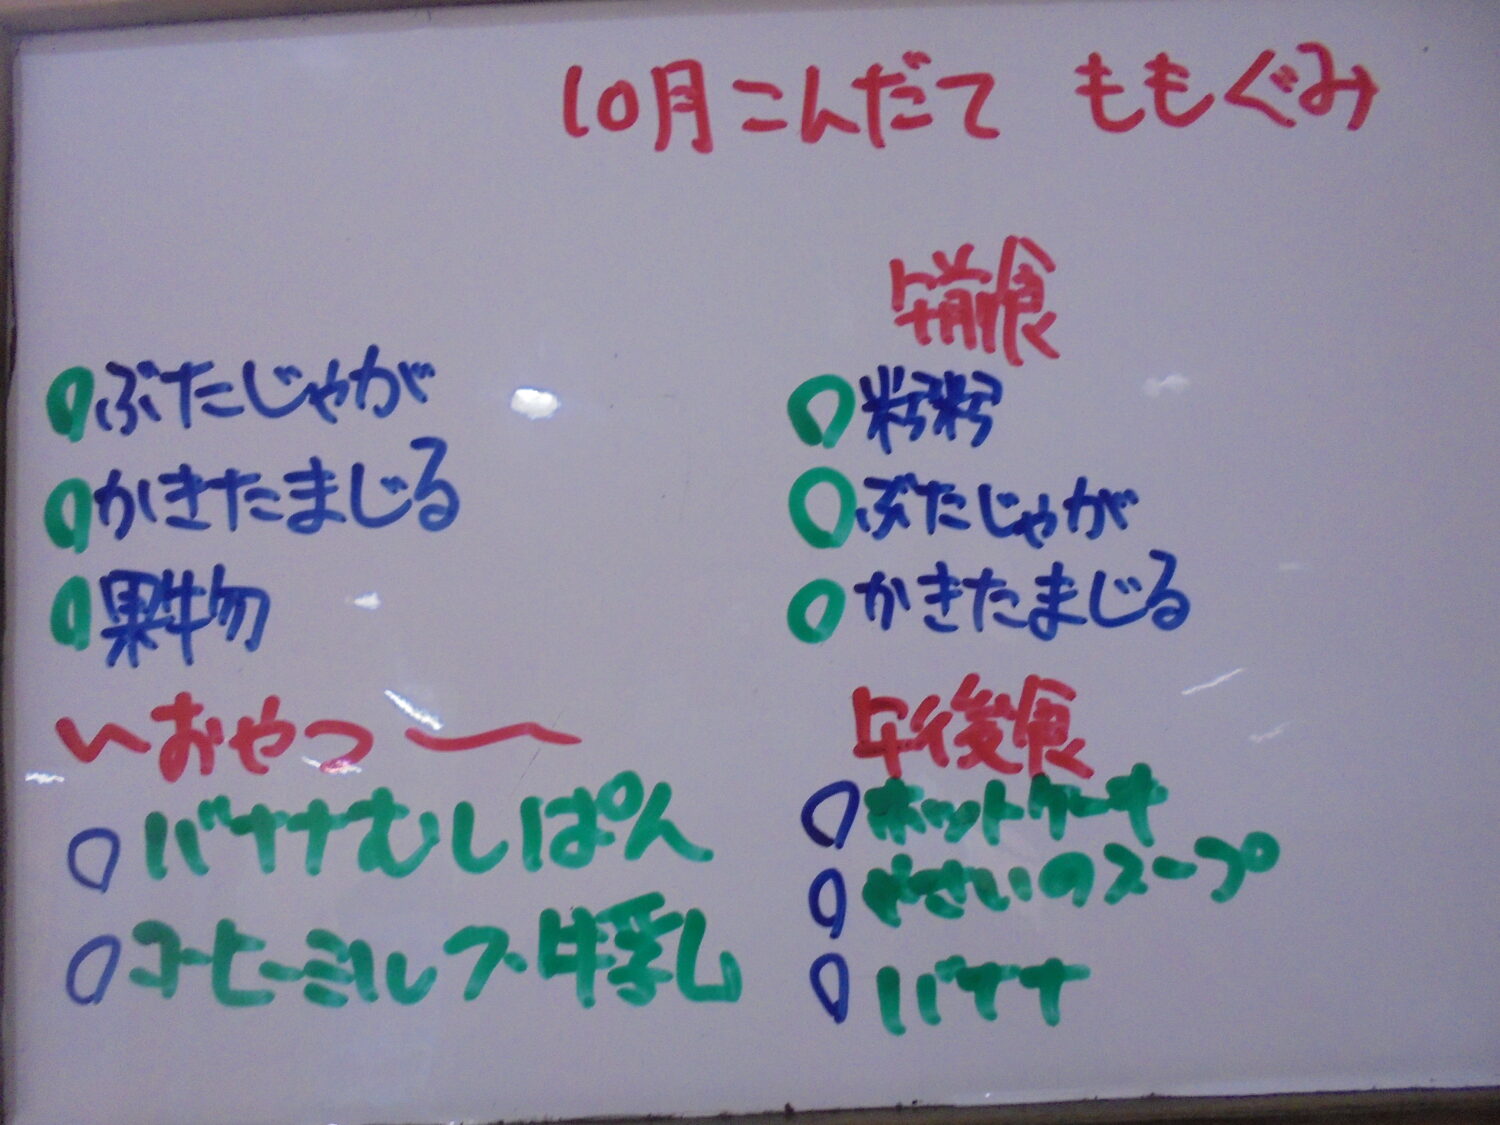 10月こんだて ももぐみ
○ぶたじゃが
○かきたまじる
○果物
〜おやつ〜
○バナナむしぱん
○コーヒーミルク・牛乳
午前食
○
○ぶたじゃが
○かきたまじる
午後食
○ホットケーキ
○やさいのスープ
○バナナ